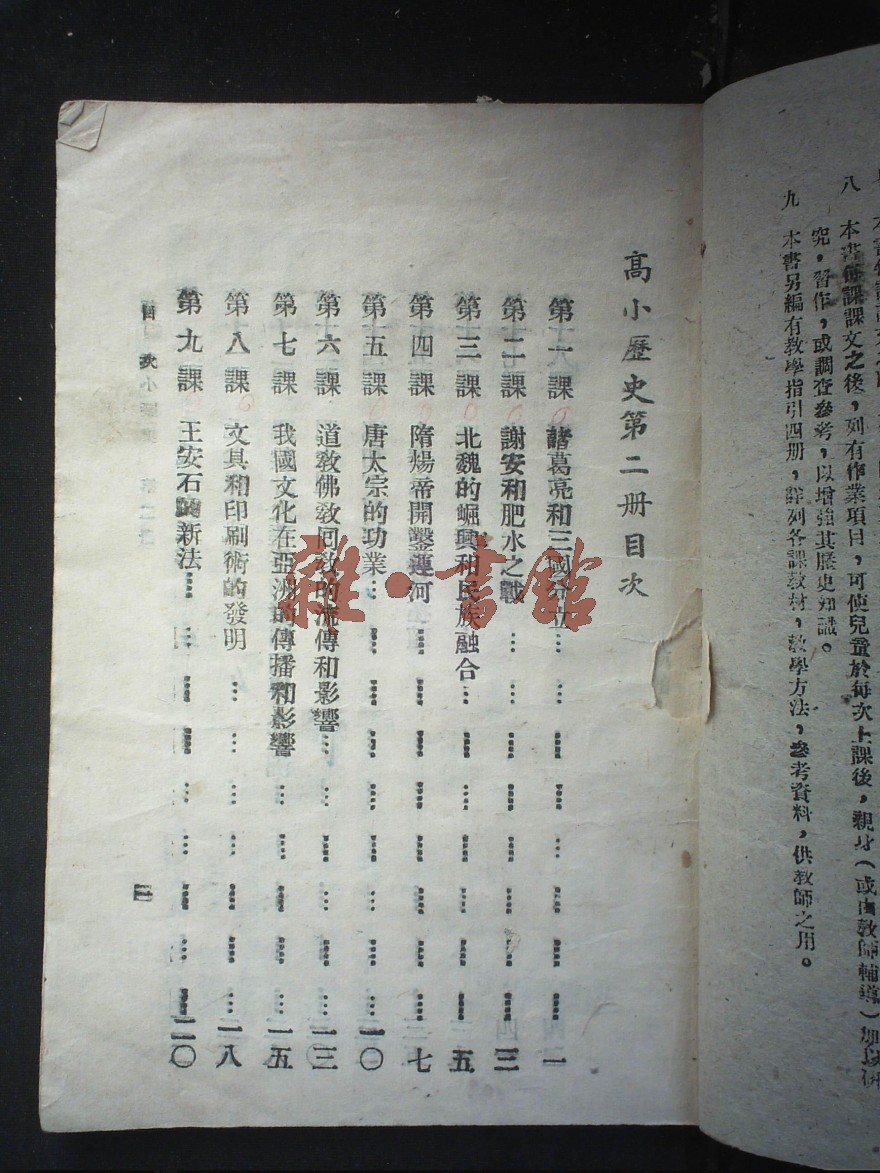 八 本書每課課文之後，列有作業項目，可使兒童於每次上課後，親身（或由教師輔導）加以研
究，習作，或調查參考，以增強其歷史知識。
九 本書另編有教學指引四册，詳列各課教材，教學方法，參考資料，供教師之用。
高小歷史第二册目次
第一課 諸葛亮和三國分立…一
第二課 謝安和肥水之戰…三
第三課 北魏的崛興和民族融合…五
第四課 隋煬帝開鑿運河…七
第五課 唐太宗的功業…一〇
第六課 道教佛教回教的流傳和影響…一三
第七課 我國文化在亞洲的傳播和影響…一五
第八課 文具和印刷術的發明…一八
第九課 王安石的新法…二〇
目次
一
雜·書館